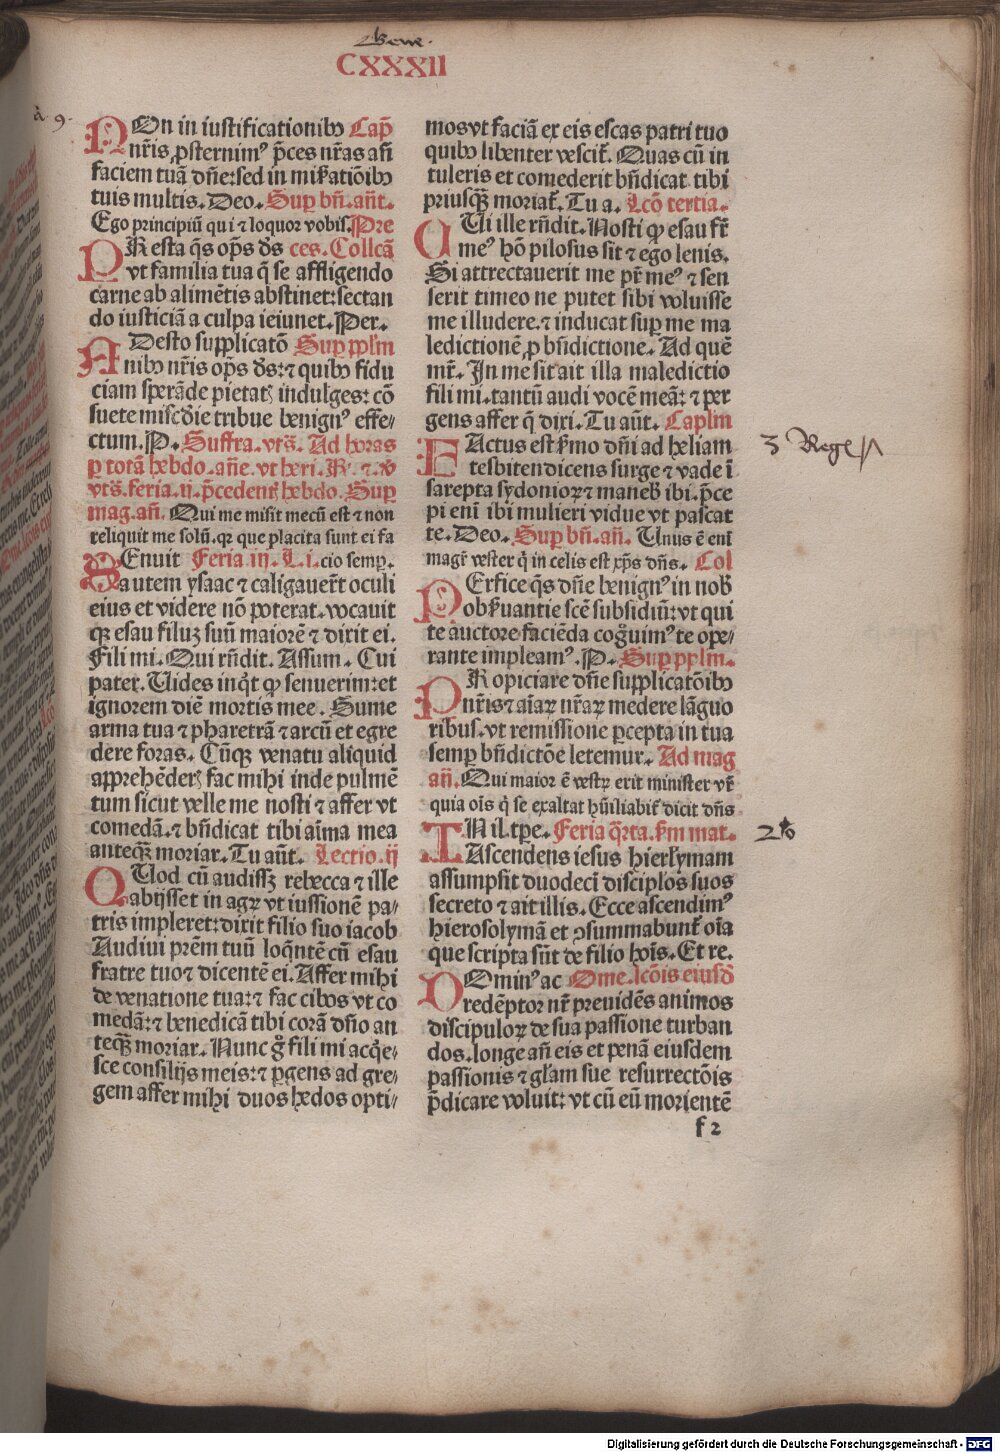 CXXXII
NOn in iustificationibꝰ Cap̄
nr̄is ꝓsternimꝰ p̄ces nr̄as an̄
faciem tuā dn̄e: sed in mis̄atiōibꝰ
tuis multis. Deo. Sup bn̄. an̄t.
Ego principiū qui ⁊ loquor vobis. Pre
PResta q̄s op̄s ds̄ ces. Collcā
vt familia tua q̄ se affligendo
carne ab alimētis abstinet: sectan
do iusticiā a culpa ieiunet. Per.
ADesto supplicatō Sup pplm
nibꝰ nr̄is op̄s ds̄: ⁊ quibꝰ fidu
ciam sperāde pietatꝭ indulges: cō
suete misc̄die tribue benignꝰ effe⸗
ctum. P. Suffra. vts̄. Ad horas
p totā hebdo. an̄e. vt heri. R̄. ⁊ v̄
vts̄. feria .ij. p̄cedentꝭ hebdo. Sup
mag. an̄. Qui me misit mecū est ⁊ non
reliquit me solū. qr que placita sunt ei fa
SEnuit Feria iij. L. i. cio semp.
autem ysaac ⁊ caligauer̄t oculi
eius et videre nō poterat. vocauit
qꝫ esau filiuꝫ suū maiorē ⁊ dixit ei.
Fili mi. Qui rn̄dit. Assum. Cui
pater. Uides inq̇t ꝙ senuerim: et
ignorem diē mortis mee. Sume
arma tua ⁊ pharetrā ⁊ arcū et egre
dere foras. Cūqꝫ venatu aliquid
apprehēderꝭ fac mihi inde pulmē
tum sicut velle me nosti ⁊ affer vt
comedā. ⁊ bn̄dicat tibi aīma mea
anteqꝫ moriar. Tu aūt. Lectio .ij
QUod cū audissꝫ rebecca ⁊ ille
abijsset in agꝝ vt iussionē pa⸗
tris impleret: dixit filio suo iacob
Audiui prēm tuū loqn̄tē cū esau
fratre tuo ⁊ dicentē ei. Affer mihi
de venatione tua: ⁊ fac cibos vt co
medā: ⁊ benedicā tibi corā dn̄o an
teqꝫ moriar. Nunc g̊ fili mi acq̇e⸗
sce consilijs meis: ⁊ pgens ad gre⸗
gem affer mihi duos hedos opti⸗
mos vt faciā ex eis escas patri tuo
quibꝰ libenter vescit̄. Quas cū in
tuleris et comederit bn̄dicat tibi
priusqꝫ moriat̄. Tu a. Lcō tertia.
CUi ille rn̄dit. Nosti ꝙ esau fr̄
meꝰ hō pilosus sit ⁊ ego lenis.
Si attrectauerit me pr̄ meꝰ ⁊ sen
serit timeo ne putet sibi voluisse
me illudere. ⁊ inducat sup me ma
ledictionē ꝓ bn̄dictione. Ad quē
mr̄. In me sit ait illa maledictio
fili mi. tantū audi vocē meā: ⁊ per
gens affer q̄ dixi. Tu aūt. Caplm
FActus est s̄mo dn̄i ad heliam
tesbiten dicens surge ⁊ vade ī
sarepta sydonioꝝ ⁊ manebꝭ ibi. p̄ce
pi enī ibi mulieri vidue vt pascat
te. Deo. Sup bn̄. an̄. Unus ē enī
magr̄ vester q̇ in celis est xp̄s dn̄s. Col
PErfice q̄s dn̄e benignꝰ in nobꝭ
obs̄uantie scē subsidiū: vt qui
te auctore faciēda cog̊uimꝰ te ope⸗
rante impleamꝰ. P. Sup pplm.
PRopiciare dn̄e supplicatōibꝰ
nr̄is ⁊ aīaꝝ nr̄aꝝ medere lāguo
ribus. vt remissione pcepta in tua
semp bn̄dictōe letemur. Ad mag
an̄. Qui maior ē vestꝝ erit minister vr̄
quia oīs q̇ se exaltat hūiliabit̄ dicit dn̄s
IN il. tp̄e. Feria q̄rta. s̄m mat.
Ascendens iesus hierl̄ymam
assumpsit duodecī disciplos suos
secreto ⁊ ait illis. Ecce ascendimꝰ
hierosolymā et ꝯsummabunt̄ oīa
que scripta sūt de filio hoīs. Et re.
DOminꝰ ac Ome. lcōis eiusd̄
redēptor nr̄ preuidēs animos
discipuloꝝ de sua passione turban
dos. longe an̄ eis et penā eiusdem
passionis ⁊ glam sue resurrectōis
p̄dicare voluit: vt cū eū morientē
f 2
3 Reg
Digitalisierung gefördert durch die Deutsche Forschungsgemeinschaft - DFG